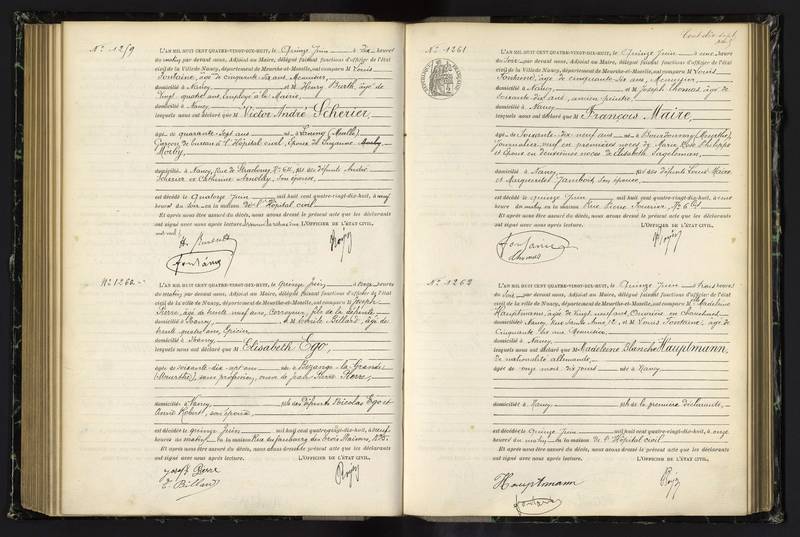 N° 1259
L'AN MIL HUIT CENT QUATRE-VINGT-DIX-HUIT, le Quinze Juin à dix heures
du matin par devant nous, Adjoint au Maire, délégué faisant fonctions d'officier de l'état
civil de la Ville de Nancy, département de Meurthe-et-Moselle, ont comparu M Louis
Fontaine, âgé de cinquante six ans, Menuisier,
domicilié à Nancy et M Henry Burth, âgé de
vingt quatre ans, employé à la Mairie,
domicilié à Nancy
lesquels nous ont déclaré que M Victor André Scherier,
âgé de quarante sept ans né à
Garçon de bureau à l'Hôpital civil, Époux de Suzanne
Morby,
domicilié à Nancy, Rue de Strasbourg, N° fils des défunts André
Scherier et Catherine Arnoldy, son épouse,
est décédé le Quatorze Juin mil huit cent quatre-vingt-dix-huit, à neuf
heures du soir en la maison de l'Hôpital civil
Et après nous être assuré du décès, nous avons dressé le présent acte que les déclarants
ont signé avec nous après lecture. L'OFFICIER DE L'ÉTAT CIVIL,
Fontaine
N° 1260
L'AN MIL HUIT CENT QUATRE-VINGT-DIX-HUIT, le quinze Juin à onze heures
du matin par devant nous, Adjoint au Maire, délégué faisant fonctions d'officier de l'état
civil de la ville de Nancy, département de Meurthe-et-Moselle, ont comparu M Joseph
Pierre, âgé de trente neuf ans, Corroyeur, fils de la défunte
domicilié à Nancy et M Émile Billard, âgé de
trente quatre ans, Épicier
domicilié à Nancy
lesquels nous ont déclaré que M Elisabeth Ego,
âgée de soixante-dix-sept ans née à Bezange-la-Grande
(Meurthe), sans profession, veuve de Jean Pierre Pierre,
domiciliée à Nancy fille des défunts Nicolas Ego et
Anne Robert, son épouse,
est décédée le quinze Juin mil huit cent quatre-vingt-dix-huit, à neuf
heures du matin en la maison Rue du faubourg des Trois Maisons, N°
Et après nous être assuré du décès, nous avons dressé le présent acte que les déclarants
ont signé avec nous après lecture. L'OFFICIER DE L'ÉTAT CIVIL,
Joseph Pierre
E. Billard
Cent dix sept
N° 1261
L'AN MIL HUIT CENT QUATRE-VINGT-DIX-HUIT, le Quinze Juin à une heure
du Soir par devant nous, Adjoint au Maire, délégué faisant fonctions d'officier de l'état
civil de la Ville de Nancy, département de Meurthe-et-Moselle, ont comparu M Louis
Fontaine, âgé de cinquante six ans, Menuisier,
domicilié à Nancy et M Joseph Thomas, âgé de
soixante dix ans, ancien peintre,
domicilié à Nancy
lesquels nous ont déclaré que M François Maire,
âgé de Soixante-dix neuf ans né à Bourdonnay (Meurthe),
Journalier, veuf en premières noces de Marie Rose Philippe
et Époux en deuxièmes noces de Elisabeth
domicilié à Nancy fils des défunts Louis Maire
et Marguerite Jambois, son épouse,
est décédé le quinze Juin mil huit cent quatre-vingt-dix-huit, à une
heure du matin en la maison Rue Pierre Fourier, N° 6 bis
Et après nous être assuré du décès, nous avons dressé le présent acte que les déclarants
ont signé avec nous après lecture. L'OFFICIER DE L'ÉTAT CIVIL,
Fontaine
Thomas
N° 1262
L'AN MIL HUIT CENT QUATRE-VINGT-DIX-HUIT, le Quinze Juin à trois heures
du Soir par devant nous, Adjoint au Maire, délégué faisant fonctions d'officier de l'état
civil de la ville de Nancy, département de Meurthe-et-Moselle, ont comparu M Madeleine
Hauptmann, âgée de vingt neuf ans, Ouvrière en
domiciliée Nancy, Rue Sainte Anne, 12, et M Louis Fontaine, âgé de
Cinquante six ans, Menuisier,
domicilié à Nancy
lesquels nous ont déclaré que M Madeleine Blanche Hauptmann,
de nationalité allemande,
âgée de onze mois dix jours née à Nancy
domiciliée à Nancy fille de la première déclarante,
est décédée le Quinze Juin mil huit cent quatre-vingt-dix-huit, à onze
heures du matin en la maison de l'Hôpital civil
Et après nous être assuré du décès, nous avons dressé le présent acte que les déclarants
ont signé avec nous après lecture. L'OFFICIER DE L'ÉTAT CIVIL,
Hauptmann
Fontaine